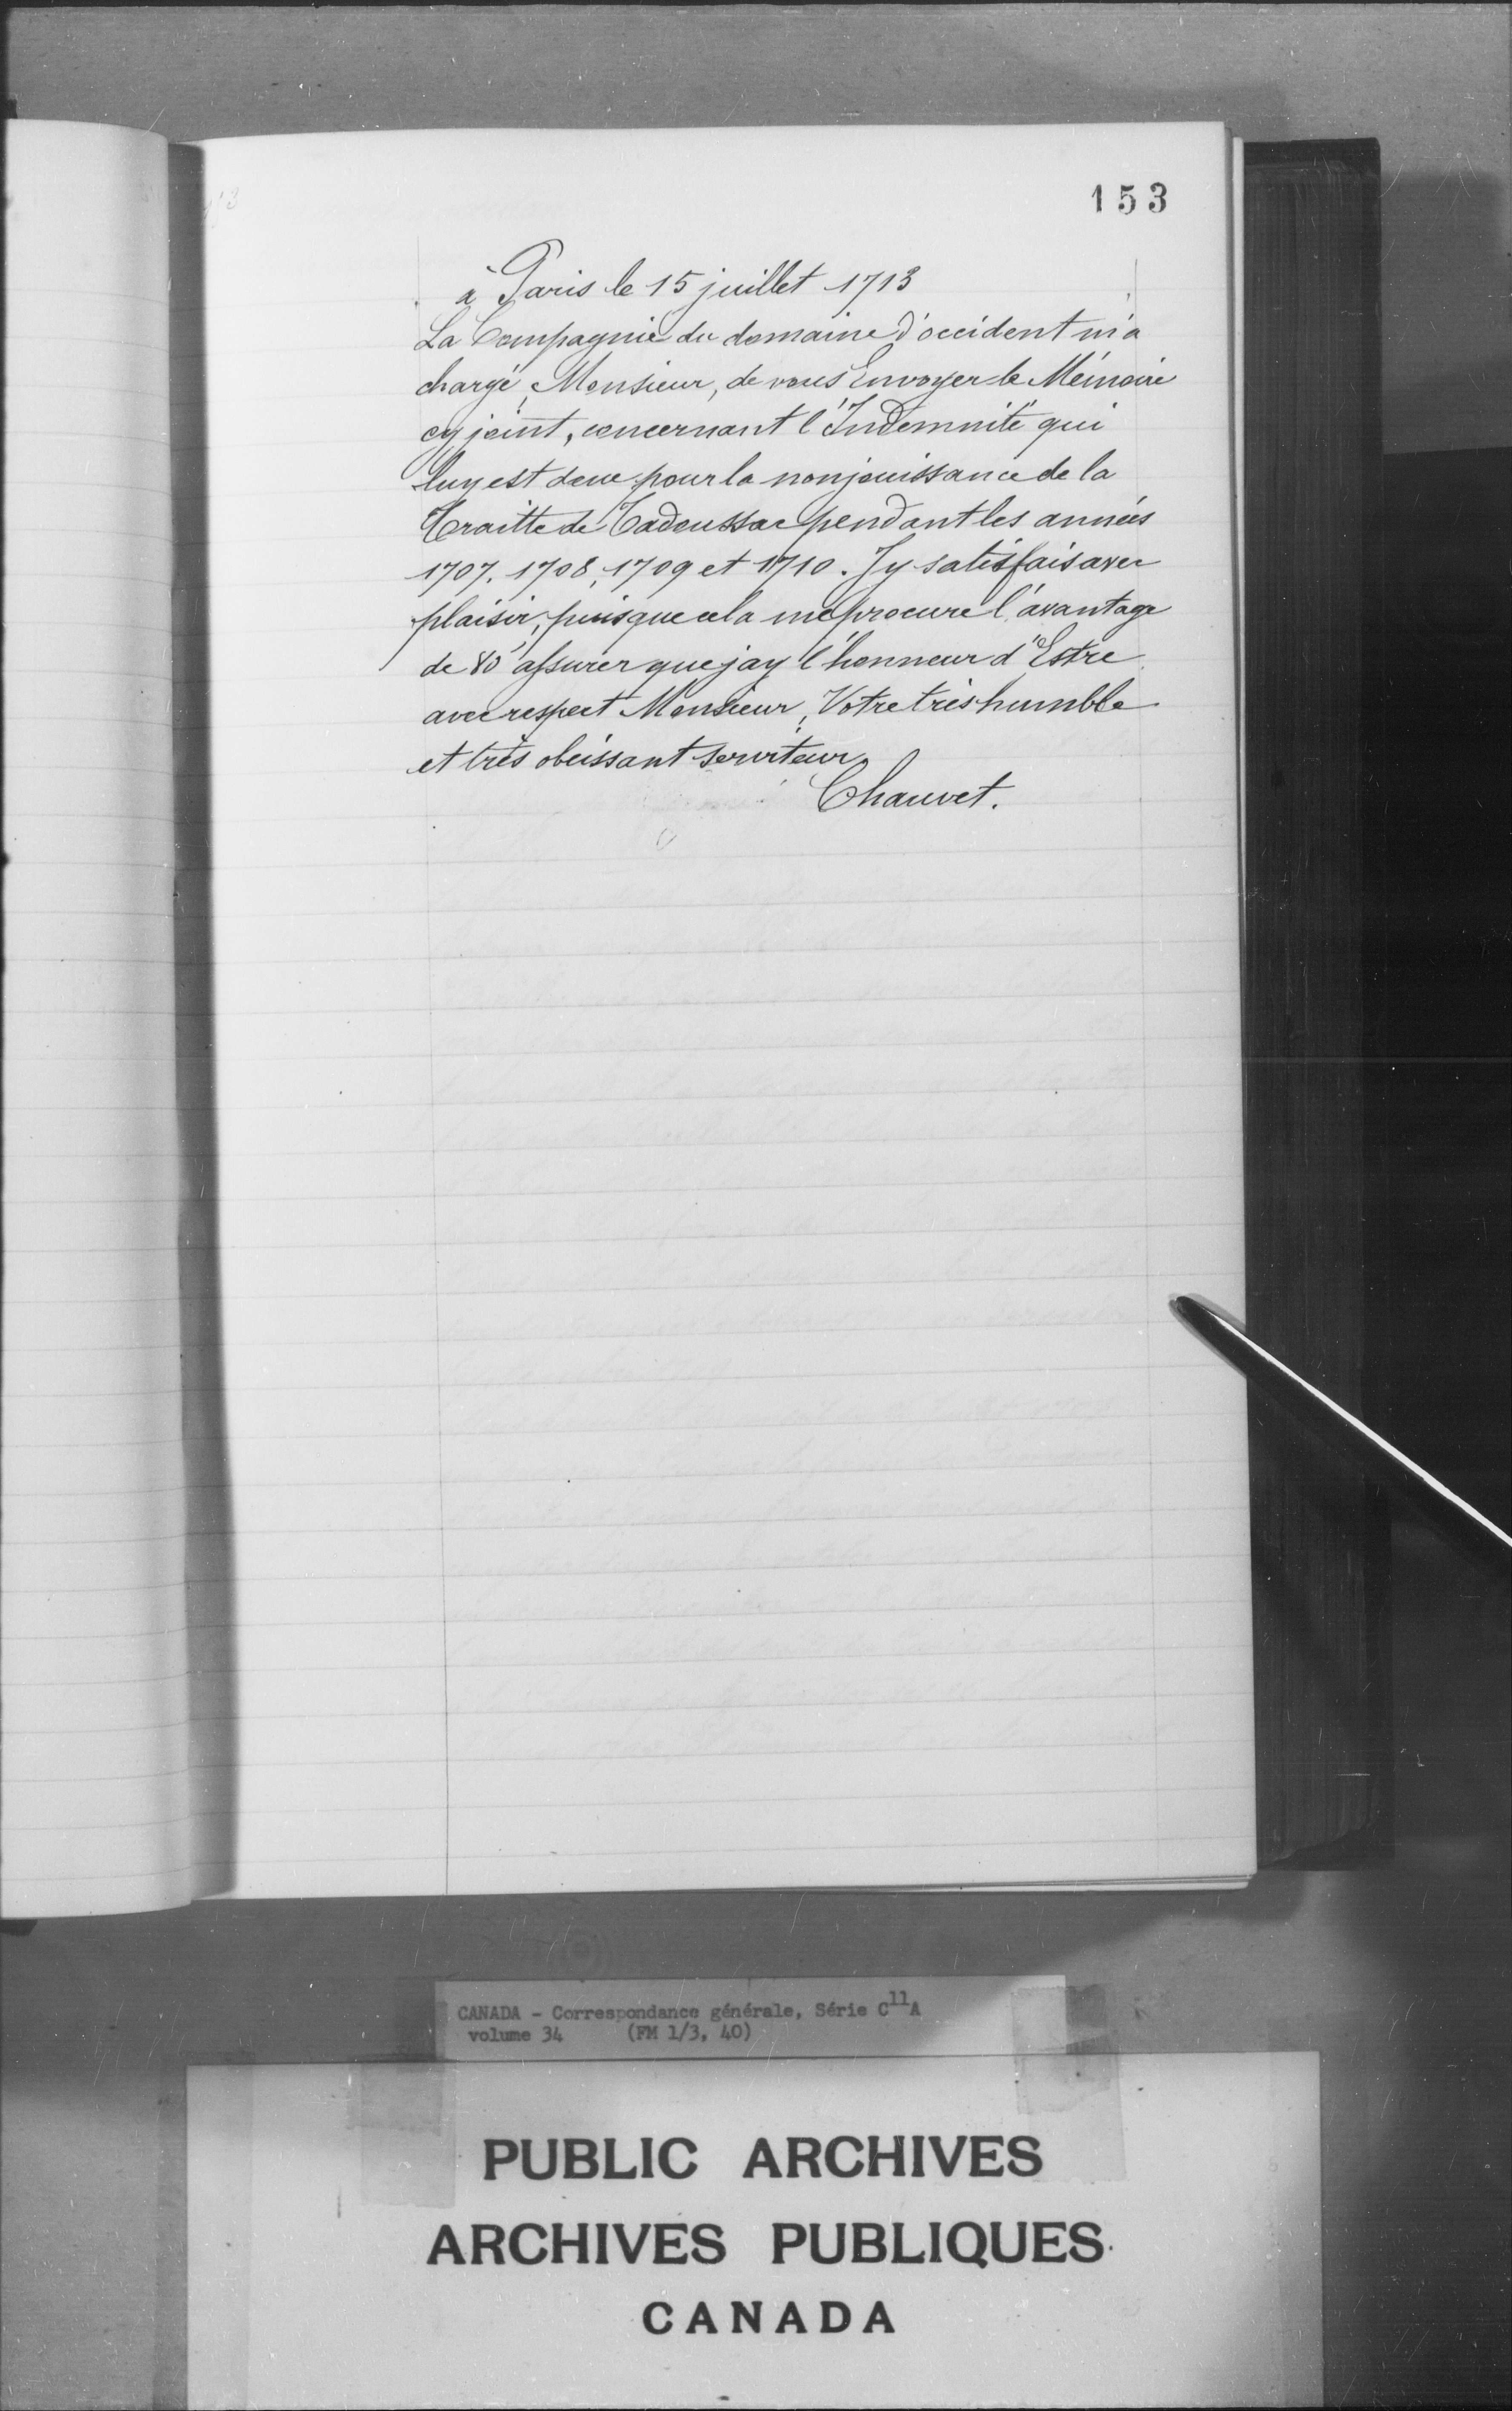 153
à Paris le 15 juillet 1713
La Compagnie du domaine d'occident m'a
chargé, Monsieur, de vous Envoyer le Mémoire
cy joint, concernant l'Indemnité qui
luy est deue pour la non jouissance de la
Traitte de Tadoussac pendant les années
1707. 1708, 1709 et 1710. Jy satisfais avec
plaisir, puisque cela me procure l'avantage
de assurer que jay l'honneur d'Estre
avec respect Monsieur, Votre très humble
et très obeissant serviteur
Chauvet.
CANADA - Correspondance générale, Série C11A
volume 34 (FM 1/3, 40)
PUBLIC ARCHIVES
ARCHIVES PUBLIQUES
CANADA